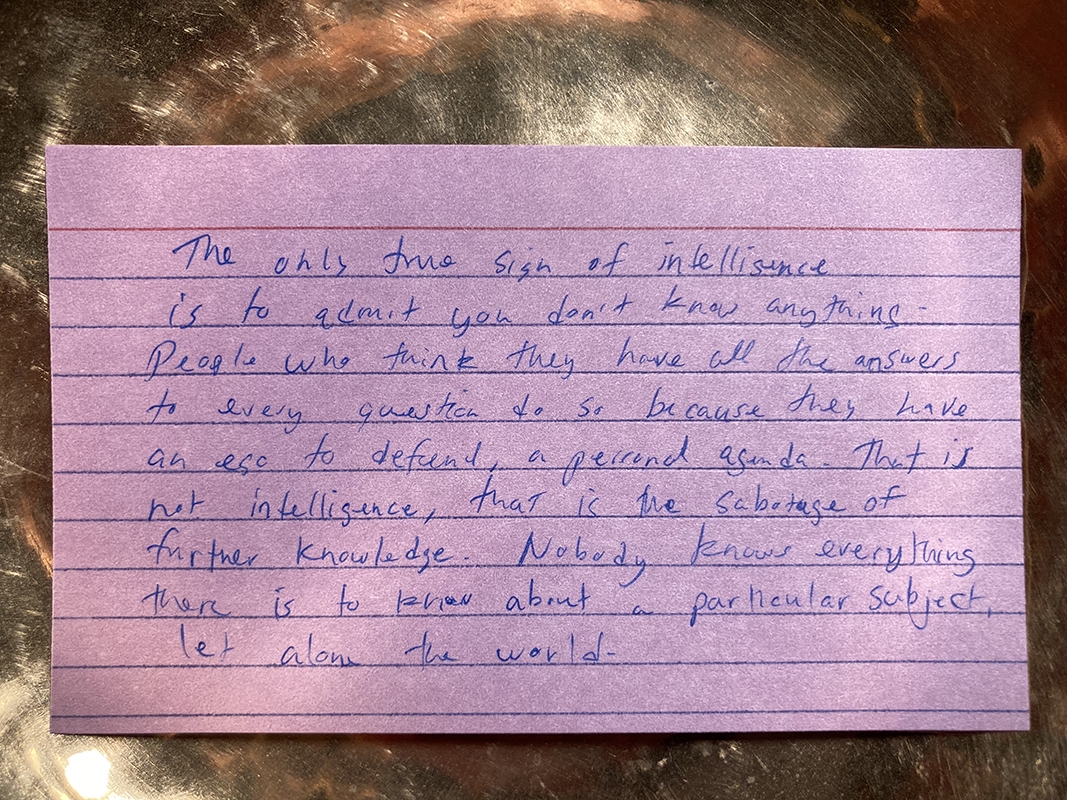 The only true sign of intelligence
is to admit you don't know anything.
People who think they have all the answers
to every question do so because they have
an ego to defend, a personal agenda. That is
not intelligence, that is the sabotage of
further knowledge. Nobody knows everything
there is to know about a particular subject,
let alone the world.